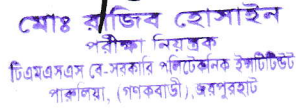 মোঃ রাজিব হোসাইন
পরীক্ষা নিয়ন্ত্রক
টিএমএসএস বে-সরকারি পলিটেকনিক ইন্সটিটিউট
পারুলিয়া, (গণকবাড়ী), জয়পুরহাট